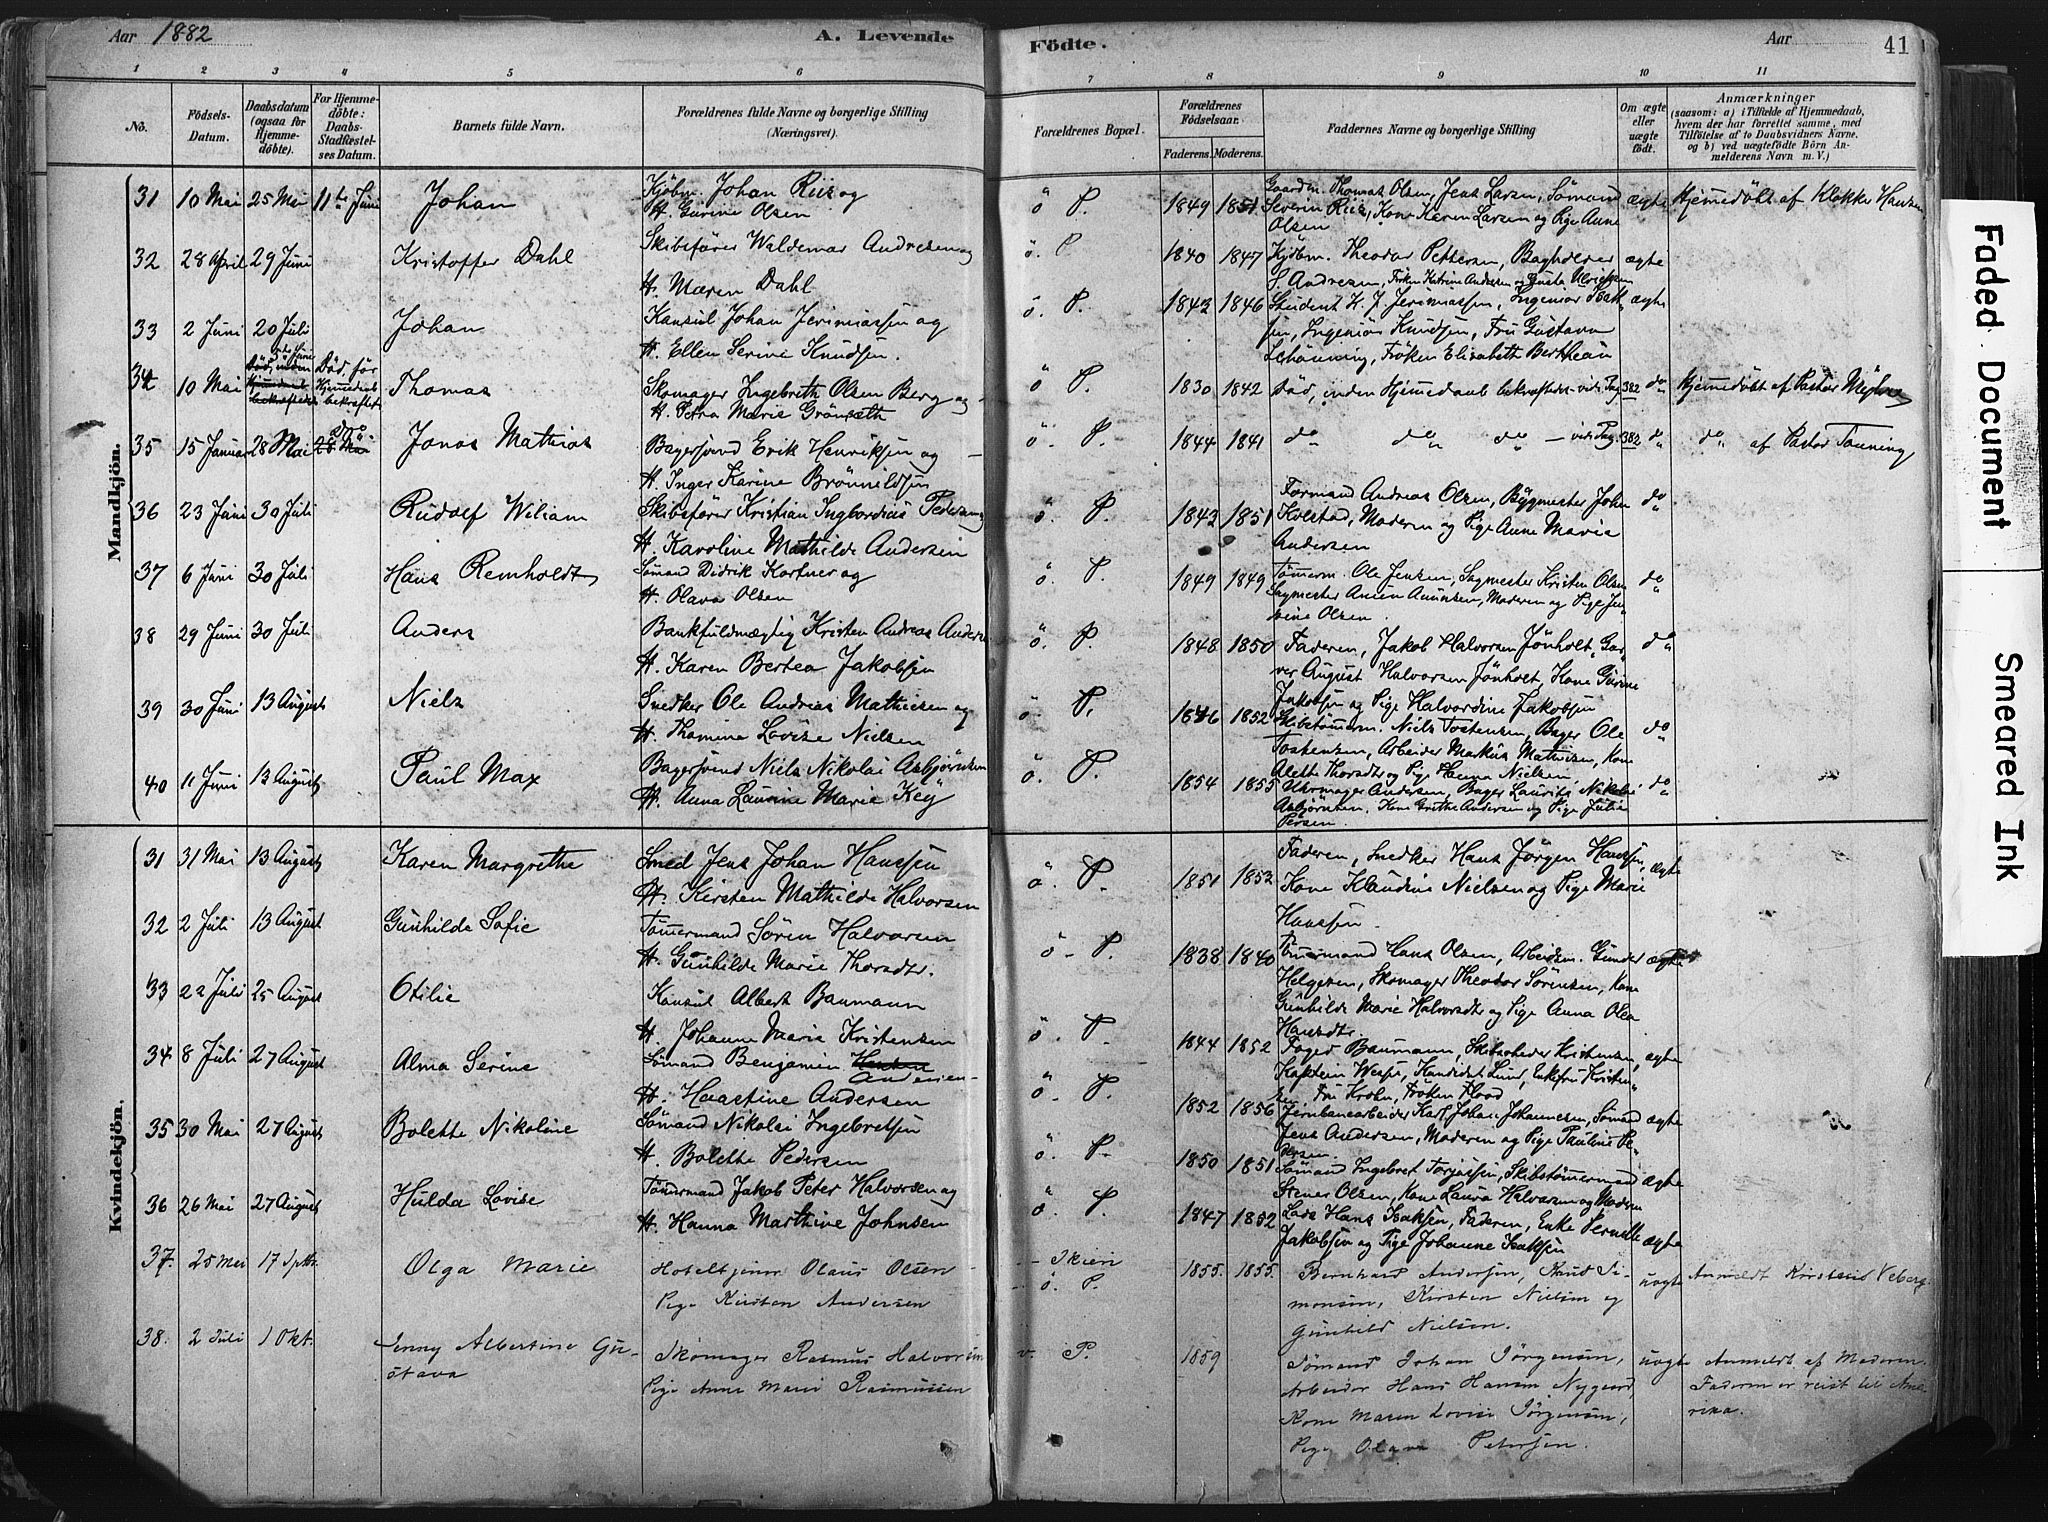 Aar 1882
A. Levende
Födte.
Aar
41
1 2 3 4 5 6 7 8 9 10 11
No.
Födsels-
Datum.
Daabsdatum
(ogsaa for
Hjemme-
döbte).
For Hjemme-
döbte:
Daabs-
Stadfæstel-
ses Datum.
Barnets fulde Navn.
Forældrenes fulde Navne og borgerlige Stilling
(Næringsvei).
Forældrenes Bopæl.
Forældrenes
Födselsaar.
Faderens. Moderens.
Faddernes Navne og borgerlige Stilling
Om ægte
eller
uægte
födt.
Anmærkninger
(saasom: a) i Tilfælde af Hjemmedaab,
hvem der har forrettet samme, med
Tilföielse af to Daabsvidners Navne,
og b) ved uægtefödte Börn An-
melderens Navn m. V.)
Mandkjön.
31 10 Mai 25 Mai 11te Juni Johan
Kjöbm. Johan Riis og
H. Gurine Olsen
ö P. 1849 1851
Gaardm. Thomas Olsen, Jens Larsen, Sömand
Severin Riis, Kone Karen Larsen og Pige Anne
Olsen
ægte Hjemmedöbt af Klokker Hansen
32 28 April 29 Juni Kristoffer Dahl
Skibsförer Waldemar Andresen og
H. Maren Dahl
ö. P 1840 1847
Kjöbm. Theodor Pettersen, Bagholerer
S. Andresen, Fröken Katrine Andersen og Gusta Ulrichsen
ægte
33 2 Juni 20 Juli Johan
Konsul Johan Jeremiassen og
H. Ellen Serine Knudsen.
ö. P. 1843 1846
Student H. J. Jeremiassen, Ingeniör Isak
sen, Ingeniör Knudsen, Fru Gustava
Schönning, Fröken Elisabeth Bertheau
ægte
34 10 Mai Död för Hjemmedaab bekræftet Thomas
Skomager Ingebreth Olsen Berg og
H. Petra Marie Grönsæth
ö P. 1830 1842
Död, inden Hjemmedaab bekræftedes - vide Pag. 382
do Hjemmedöbt af Pastor
35 15 Januar 28 Mai Jonas Mathias
Bagersvend Erik Henriksen og
H. Inger Karine Brönnildsen
ö. P. 1844 1841 do do do - vide Pag. 382 do
do af Pastor Tanning
36 23 Juni 30 Juli Rudolf Wiliam
Skibsförer Kristian Ingvardius Pedersen og
H. Karoline Mathilde Andersen
ö. P. 1843 1851
Formand Andreas Olsen, Bygmester Johan
Kolstad, Moderen og Pige Anne Marie
Andersen
do
37 6 Juni 30 Juli Hans Remholdt
Sömand Didrik Kortner og
H. Olava Olsen
ö. P. 1849 1849
Tömerm. Ole Jensen, Sagmester Kristen Olsen
Sagmester Anten Amundsen, Moderen og Pige Jen
sine Olsen
do
38 29 Juni 30 Juli Anders
Bankfuldmægtig Kristen Andreas Anders
H. Karen Bertea Jakobsen
ö. P. 1848 1850
Faderen, Jakob Halvorsen Jönholt, Gar
ver August Halvorsen Jönholt, Kone Gurine
Jakobsen og Pige Halvordine Jakobsen
do
39 30 Juni 13 August Niels
Snedker Ole Andreas Mathiesen og
H. Thomine Lovise Nielsen
ö. P. 1846 1852
Skibstömerm. Niels Tostensen, Bager Ole
Tostensen, Arbeider Markus Mathiesen, Kone
Alette Thorsdtr og Pige Hanna Nielsen
do
40 11 Juni 13 August Paul Max
Bagersvend Niels Nikolai Asbjörnsen
H. Anna Laurine Marie Key
ö. P. 1854 1855
Uhrmager Andersen, Bager Lauritz Nikolai
Asbjörnsen, Kone Grethe Andersen og Pige Julie
Persen.
do
Kvindekjön.
31 31 Mai 13 August Karen Margrethe
Smed Jens Johan Hanssen
H. Kirsten Mathilde Halvorsen
ö. P. 1851 1853
Faderen, Snedker Hans Jörgen Hanssen,
Kone Klaudine Nielsen og Pige Marie
Hanssen.
ægte
32 2 Juli 13 August Gunhilde Sofie
Tömermand Sören Halvorsen
H. Gunhilde Marie Thorsdtr.
ö. P. 1838 1840
Tömermand Hans Olsen, Arbeidsm. Gunder
Helgesen, Skomager Theodor Sörensen, Kone
Gunhilde Marie Halvorsdtr og Pige Anna Olea
Hansdtr.
ægte
33 22 Juli 25 August Otilie
Konsul Albert Baumann
H. Johanne Marie Kristensen
ö. P. 1844 1852
Foged Baumann, Skibsreder Kristensen,
Kaptein Wesse, Kandidat Lund, Enkefru Kristen
sen, Fru Krohn, Fröken Flood
ægte
34 8 Juli 27 August Alma Serine
Sömand Benjamin Andersen
H. Haastine Andersen
ö. P. 1852 1856
Jernbanearbeider Karl Johan Johannesen, Sömand
Jens Andersen, Moderen og Pige Pauline Pe-
dersen.
ægte
35 30 Mai 27 August Bolette Nikoline
Sömand Nikolai Ingebretsen
H. Bolette Pedersen
ö. P. 1850 1851
Sömand Ingebret Torjussen, Skibstömermand
Stener Olsen, Kone Laura Halvorsen og Moderen
ægte
36 26 Mai 27 August Hulda Lovise
Tömmermand Jakob Peter Halvorsen og
H. Hanna Marthine Johnsen
ö. P. 1847 1852
Lods Hans Isaksen, Faderen, Enke Pernille
Jakobsen og Pige Johanne Isaksen
ægte
37. 25 Mai 17 Septbr. Olga Marie
Hoteltjener Olaus Olsen
Pige Kirsten Andersen
Skien
ö. P. 1855. 1855.
Bernhard Andersen, Knud Si-
monsen, Kirsten Nielsen og
Gunhild Nielsen.
uægte Anmeldt Kirstine Veberg.
38. 2 Juli 1 Okt. Jenny Albertine Gu-
stava
Skomager Rasmus Halvorsen
Pige Anne Marie Rasmussen
v. P. 1859
Sömand Johan Jörgensen,
Arbeider Hans Hansen Nygaard,
Kone Maren Lovise Jörgensen,
Pige Olava Petersen.
uægte Anmeldt af Moderen.
Faderen er reist til Ame-
rika.
Faded Document
Smeared Ink